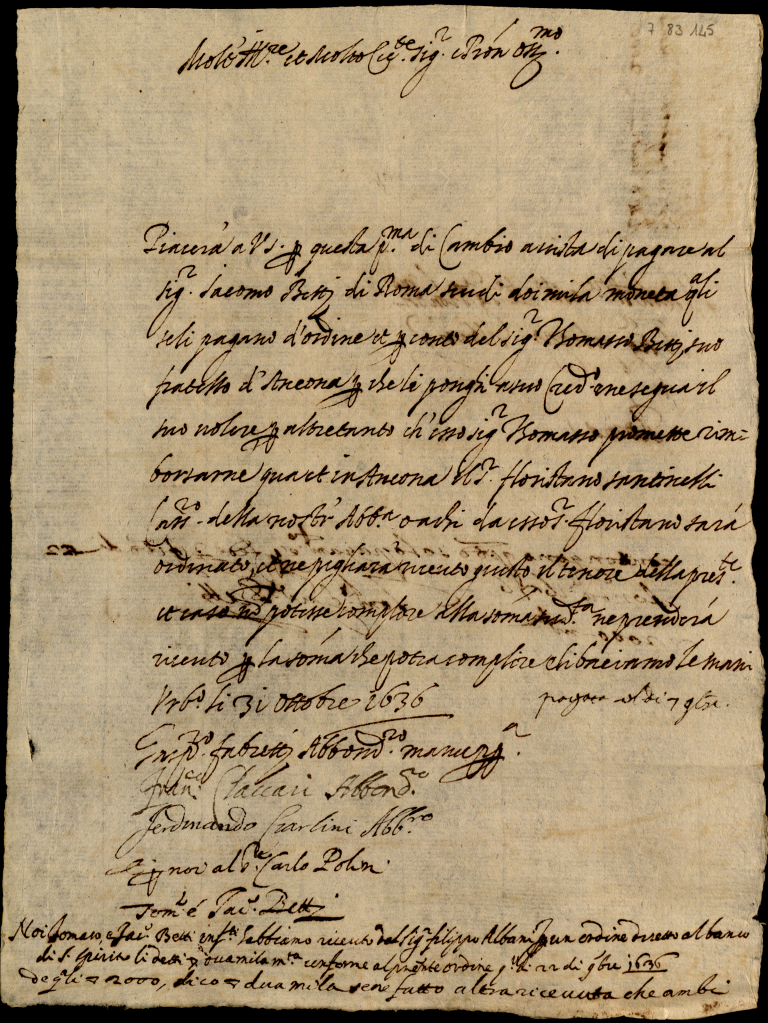 7 83 145
Molt Ill.re et Molto Ecc.te Sig.r e Pron Oss.mo
Piacerà a VS. p questa p.ma di Cambio a vista di pagare al
Sig.r Iacomo Betti di Roma scudi doi mila moneta qli
seli pagano d'ordine et p conto del Sig.r Thomasso Betti suo
fratello d'Ancona p che li ponghi a suo Cred.o ne segua il
suo volere p altretanto ch'esso Sig.r Thomasso promette rim=
borsarne qua et in Ancona il S.r floristano santinelli
della nostr' Abb.a o a chi da esso S.r floristano sarà
ordinato, et ne pigliara riceuto giusto il tenore della pres.te
et caso nō potesse complire alla sōma sud.a ne prenderà
riceuto p la sōma che potra complire e li baciamo le mani
Urb.o li 31 ottobre 1636
pagata al di 7 9bre.
fabretti Abbond.ro manu pp.a
Fran.co Abbond.o
Ferdinando Abb.ro
p noi al S.r Carlo Polini
Tom.o e Iac.o Betti
Noi Tomaso e Iac.o Betti inf.ti habbiamo riceuto dal Sig.r filippo Albani p un ordine diretto al banco
di S. Spirito li detti duamila m.ta conforme al pñte ordine q.o di 22 di 9bre 1636
de qli 2000, dico duamila sene fatto altra riceuuta che ambi